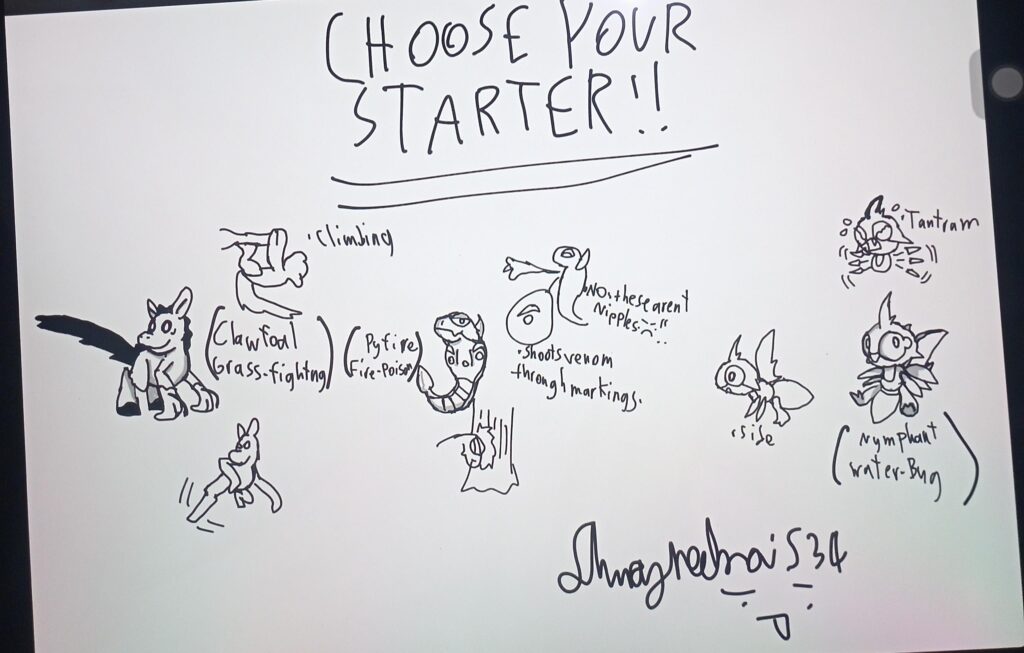 CHOOSE YOUR
STARTER!!
·Climbing
(Clawfoal
Grass-fightng)
(Pyfire
Fire-Poison)
NO, these arent
Nipples
·shoots venom
through markings.
·Tantrum
·side
(Nymphant
water-Bug)